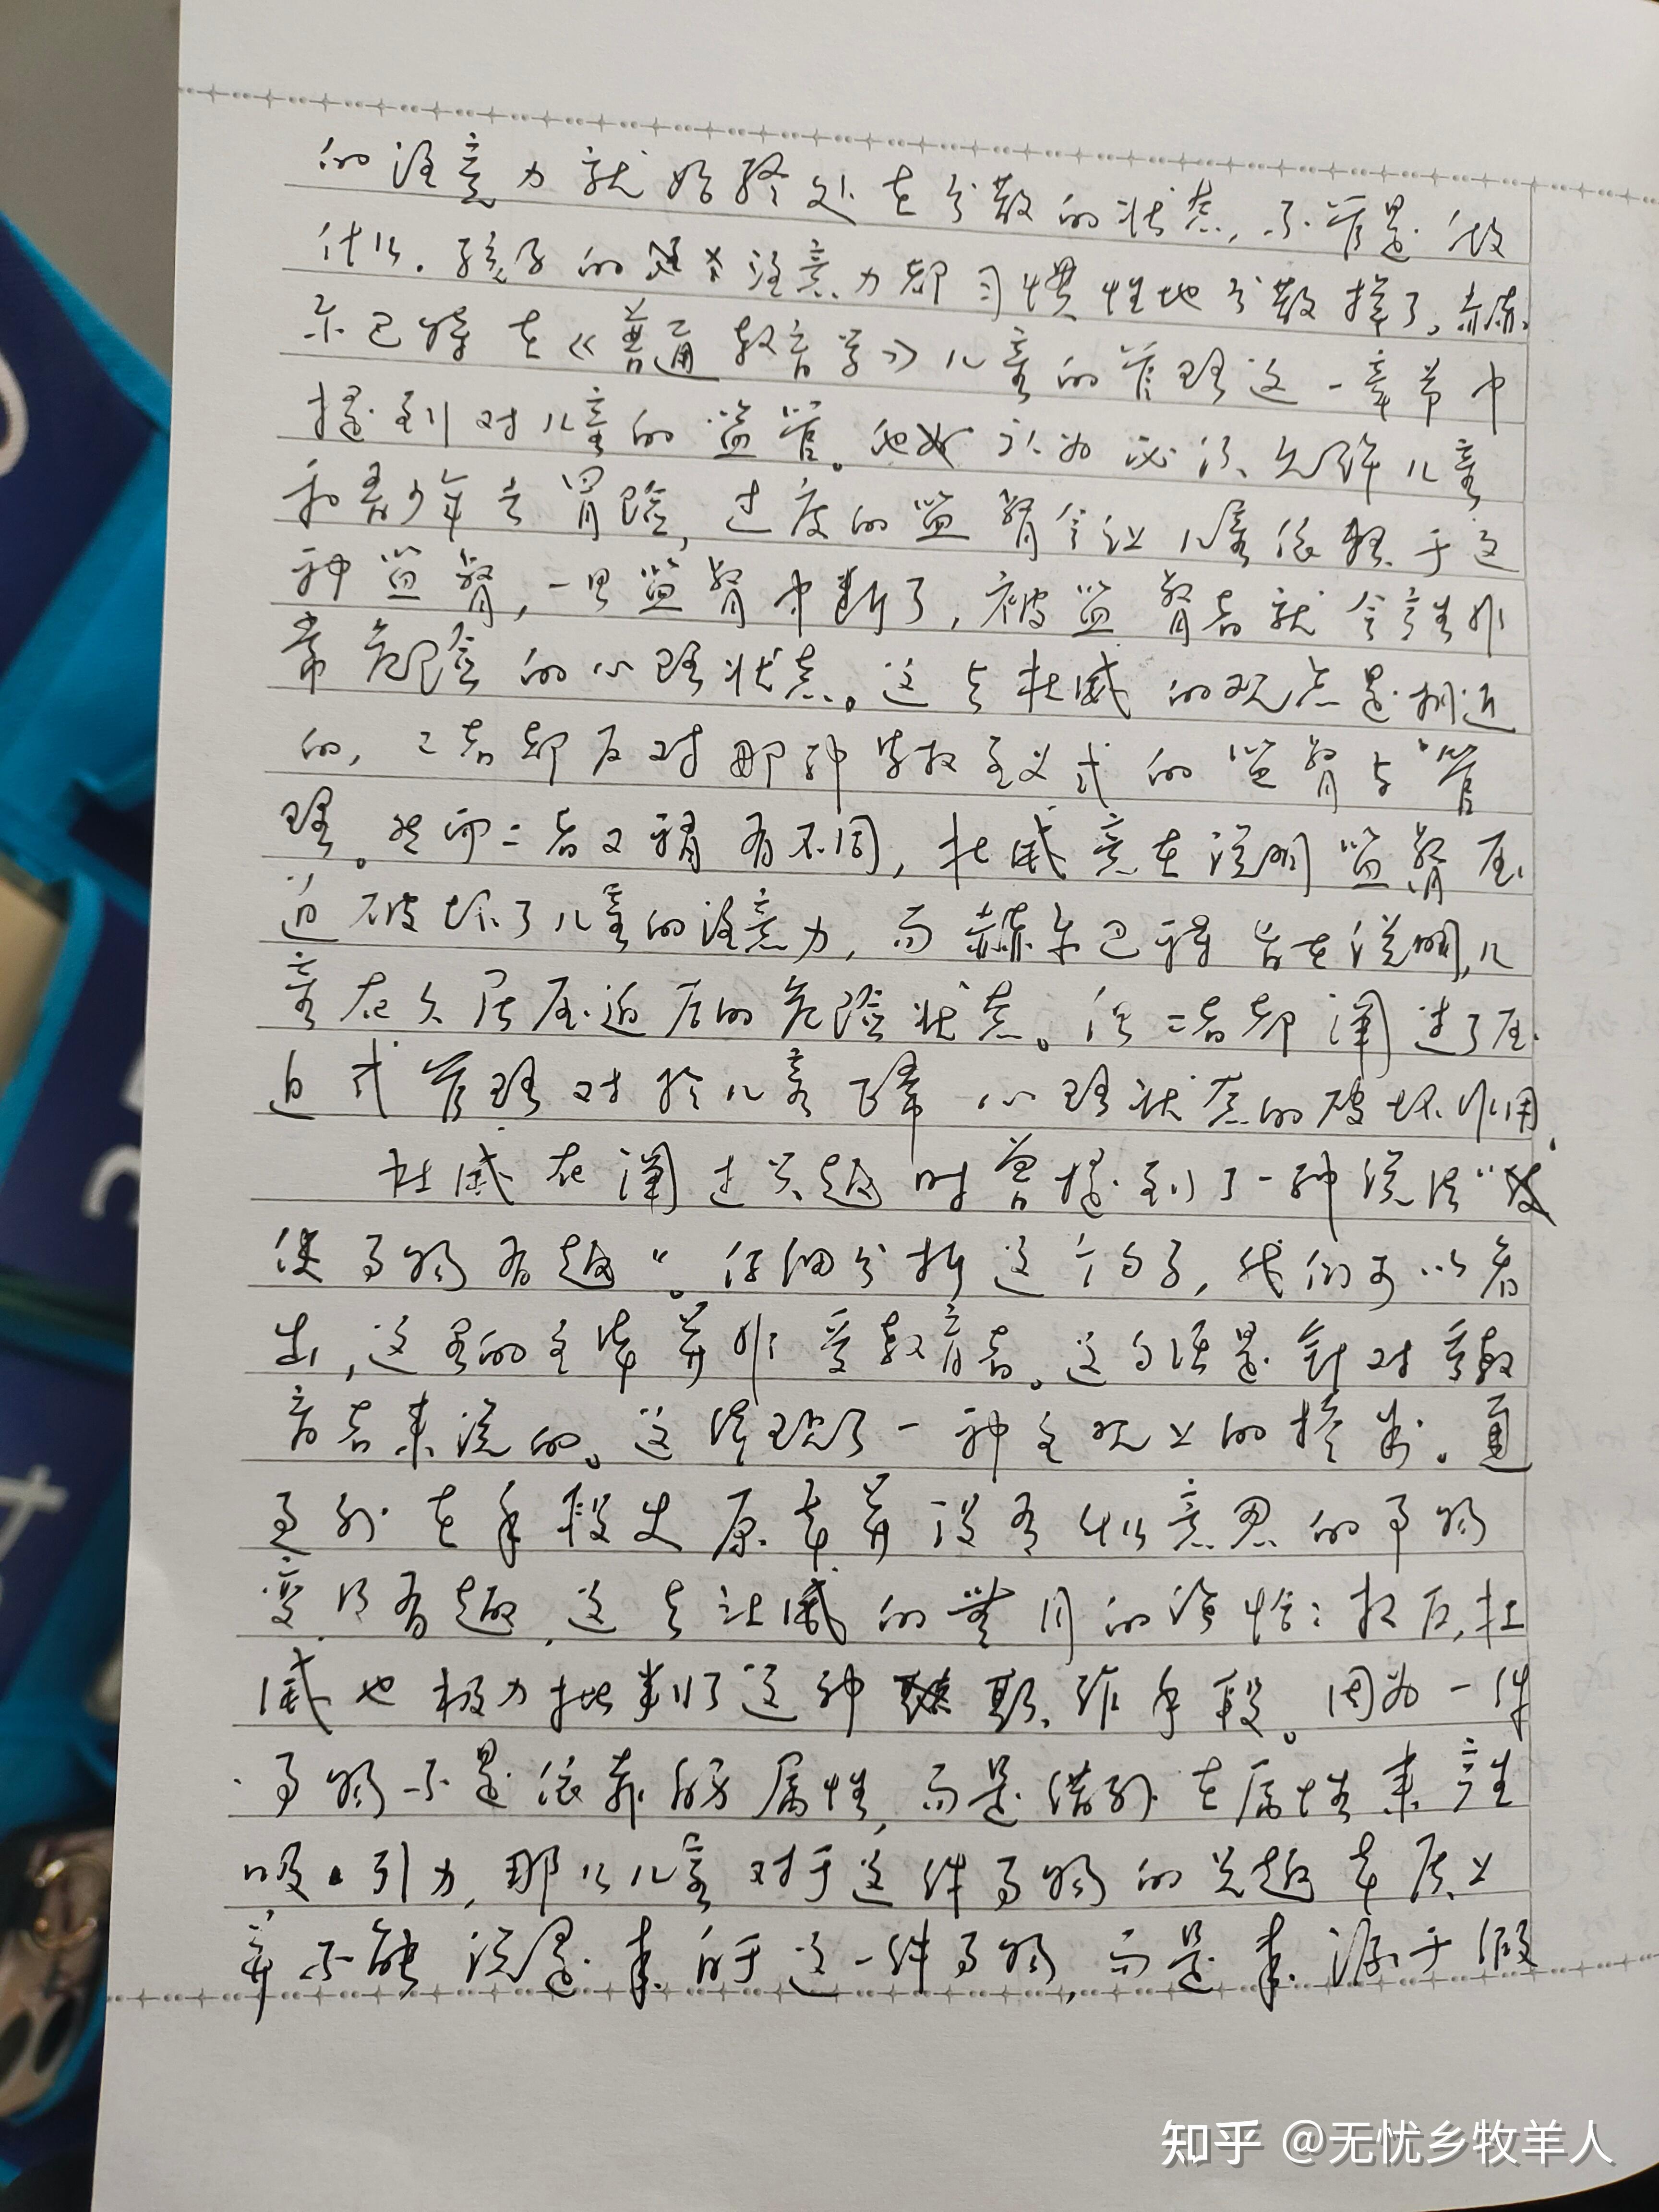 的注意力就始终处在分散的状态，不管是做
什么，孩子的注意力都习惯性地分散掉了。赫
尔巴特在《普通教育学》儿童的管理这一章节中
提到对儿童的监管。他认为必须允许儿童
和青少年去冒险，过度的监督会让儿童依赖于这
种监督，一旦监督中断了，被监督者就会产生非
常危险的心理状态。这与杜威的观点是相近
的，二者都反对那种学校主义式的监督与管
理。然而二者又稍有不同，杜威意在说明监督压
迫破坏了儿童的注意力，而赫尔巴特旨在说明儿
童在久居压迫后的危险状态。但二者都阐述了压
迫式管理对於儿童正常心理状态的破坏作用。
杜威在阐述兴趣时曾提到了一种说法“
使事物有趣”。仔细分析这个句子，我们可以看
出，这里的主体并非受教育者。这句话是针对
育者来说的。这体现了一种主观上的。通
过外在手段使原本并没有什么意思的事物
变得有趣，这与杜威的目的恰恰相反，杜
威也极力批判了这种欺诈手段。因为一件
事物不是依靠自身属性，而是借外在属性来产生
吸引力，那么儿童对于这件事物的兴趣本质上
并不能说是来自于这一件事物，而是来源于假
知乎 @无忧乡牧羊人